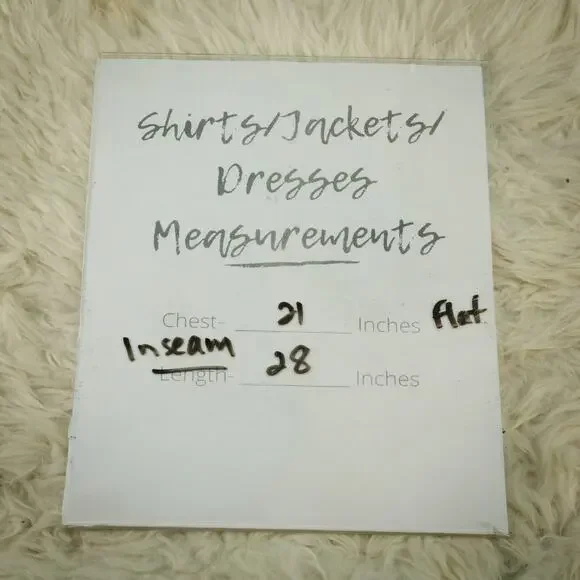 Shirts/Jackets/
Dresses
Measurements
Chest- 21 Inches Flat
Inseam
Length- 28 Inches